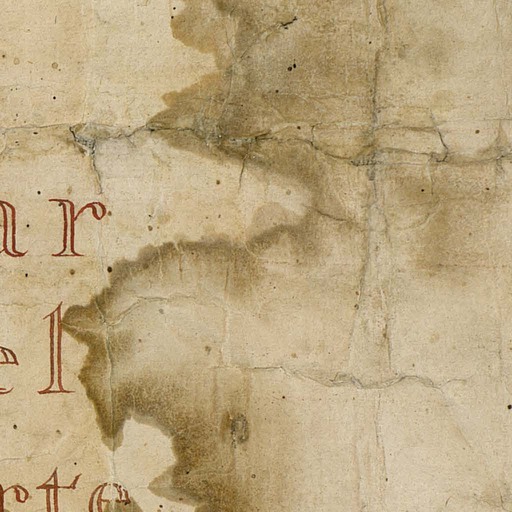 ar
el
rte